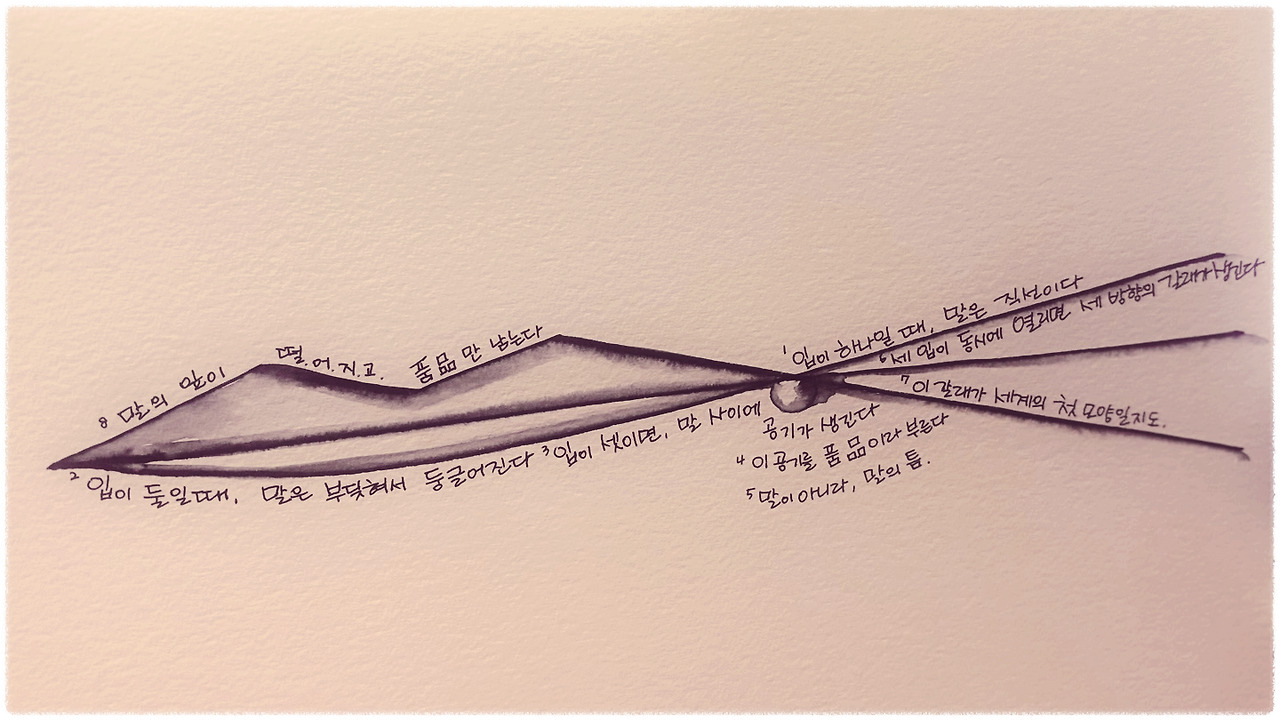 ¹입이 하나일 때, 말은 직선이다
²입이 둘일 때, 말은 부딪혀서 둥글어진다
³입이 셋이면, 말 사이에
공기가 생긴다
⁴이 공기를 품品이라 부른다
⁵말이 아니라, 말의 틈.
⁶세 입이 동시에 열리면 세 방향의 갈래가 생긴다
⁷이 갈래가 세계의 첫 모양일지도.
⁸말의 잎이
떨.어.지.고.
품品만 남는다